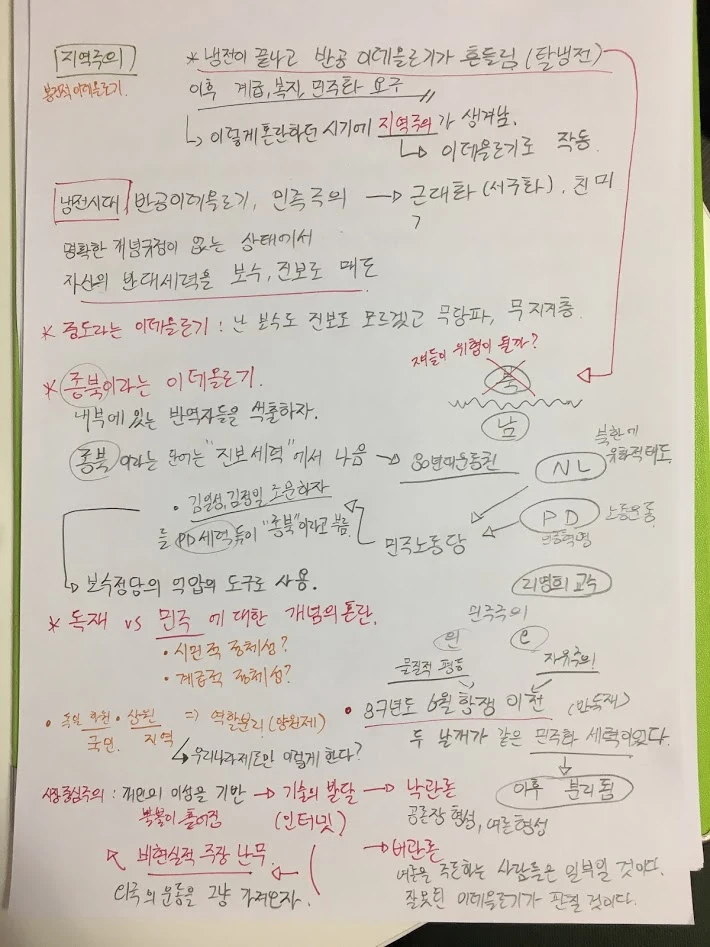 지역주의
봉건적 이데올로기.
* 냉전이 끝나고 반공 이데올로기가 흔들림 (탈냉전)
이후 계급, 복지, 민주화 요구
↳ 이렇게 혼란하던 시기에 지역주의가 생겨남.
↳ 이데올로기로 작동.
냉전시대 반공이데올로기, 민족주의 → 근대화 (서구화), 친미
명확한 개념규정이 없는 상태에서
자신의 반대세력을 보수, 진보로 매도
* 중도라는 이데올로기 : 난 보수도 진보도 모르겠고 무당파, 무지지층.
쟤들이 위협이 될까?
* 종북이라는 이데올로기.
북
내부에 있는 반역자들을 색출하자.
남
종북이라는 단어는 "진보세력"에서 나옴 → 80년대운동권
NL
북한에
유화적태도.
• 김일성, 김정일 조문하자
를 PD세력들이 "종북"이라고 부름.
민주노동당
PD
노동운동.
민중혁명
↳ 보수정당의 억압의 도구로 사용.
리영희 교수
* 독재 vs 민주 에 대한 개념의 혼란.
민주주의
• 시민적 정체성?
• 계급적 정체성?
민
물질적 평등
자유주의!
• 87년도 6월항쟁 이전 (반독재)
두 날개가 같은 민주화 세력이었다.
이후 분리됨
• 독일 하원 • 상원 ⇒ 역할분리 (양원제)
국민. 지역
↳ 우리나라제도만 이렇게 한다?
시장중심주의 : 개인의 이성을 기반 → 기술의 발달 → 낙관론
(인터넷)
공론장 형성, 여론형성
비현실적 주장 난무.
미국의 운동을 그냥 가져오자.
→ 비관론
여론을 주도하는 사람들은 일부일 것이다.
잘못된 이데올로기가 판칠 것이다.